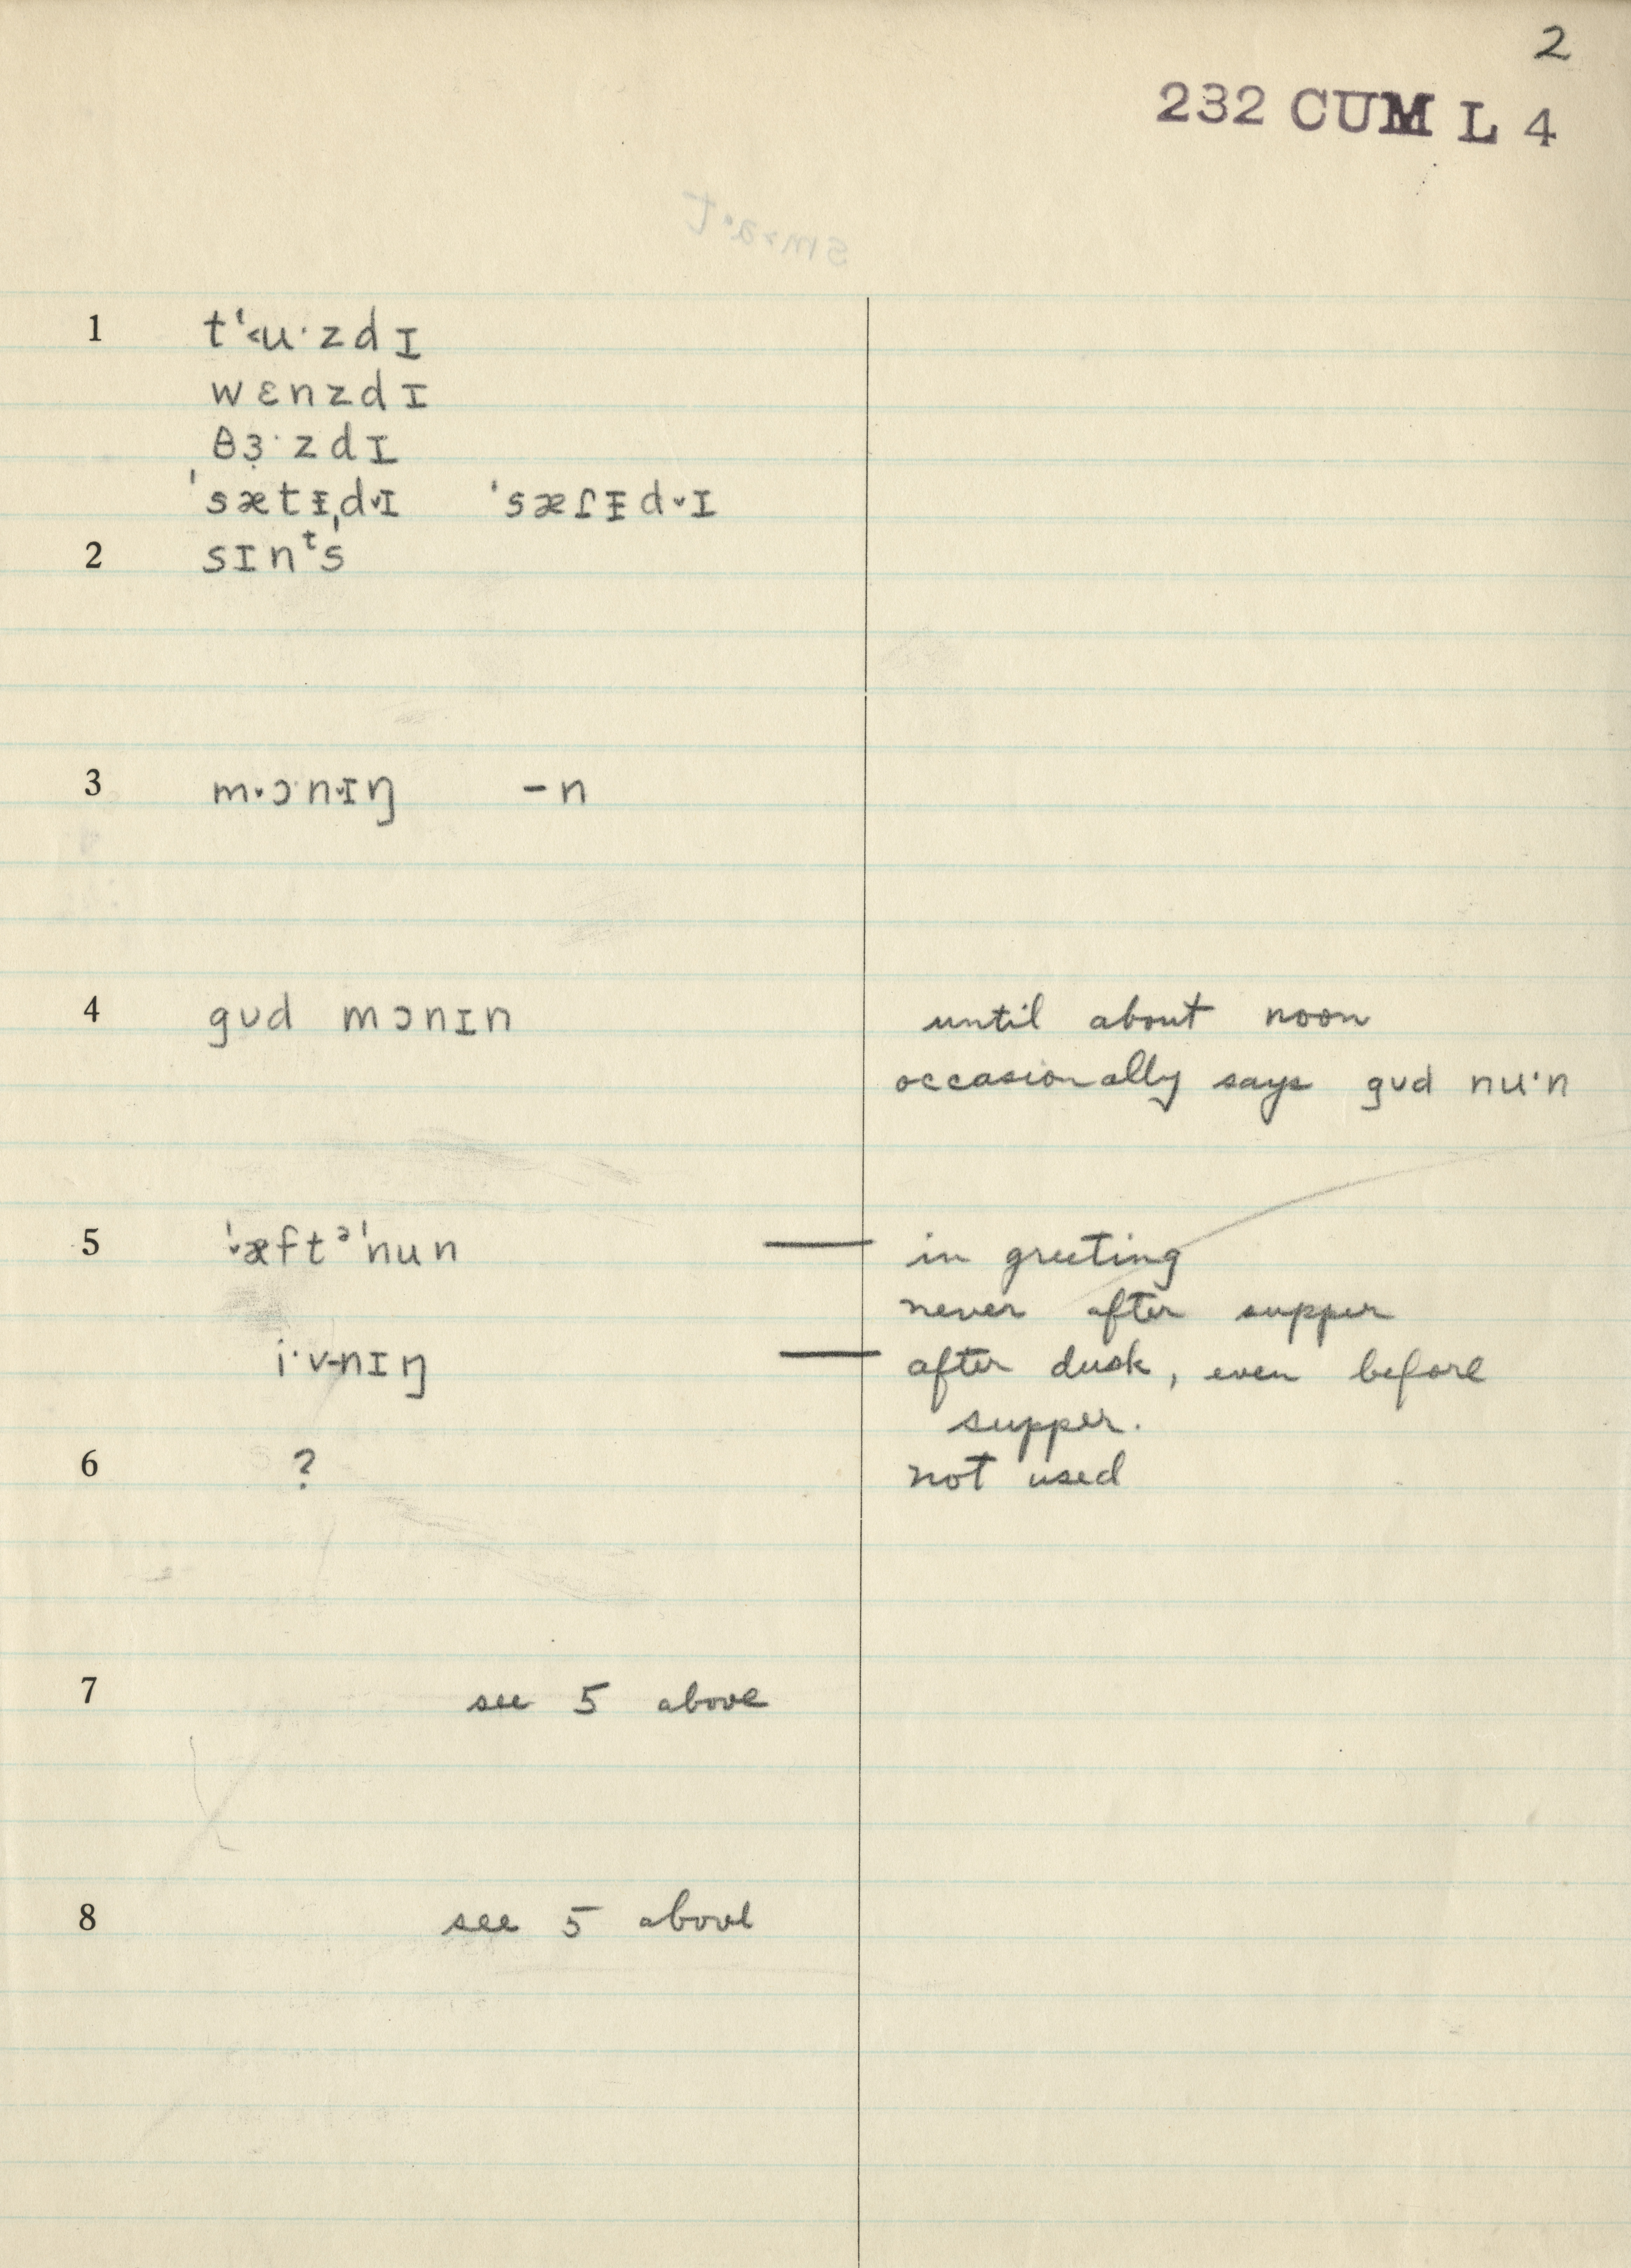 2
232 CUM L 4
1 tʻ˂u·zdɪ
wɛnzdɪ
θɜ̣·zdɪ
ˈsætᵻˌdˇɪ ˈsæɾᵻdˇɪ
2 sɪnᵗs
3 mˇɔ·nˇɪŋ – n
4 gʊd mɔnɪn until about noon
occasionally says gʊd nu·n
5 ˈˇæftᵊˈnun — in greeting
never after supper
i·v-nɪŋ — after dusk, even before
supper.
6 ? not used
7 see 5 above
8 see 5 above